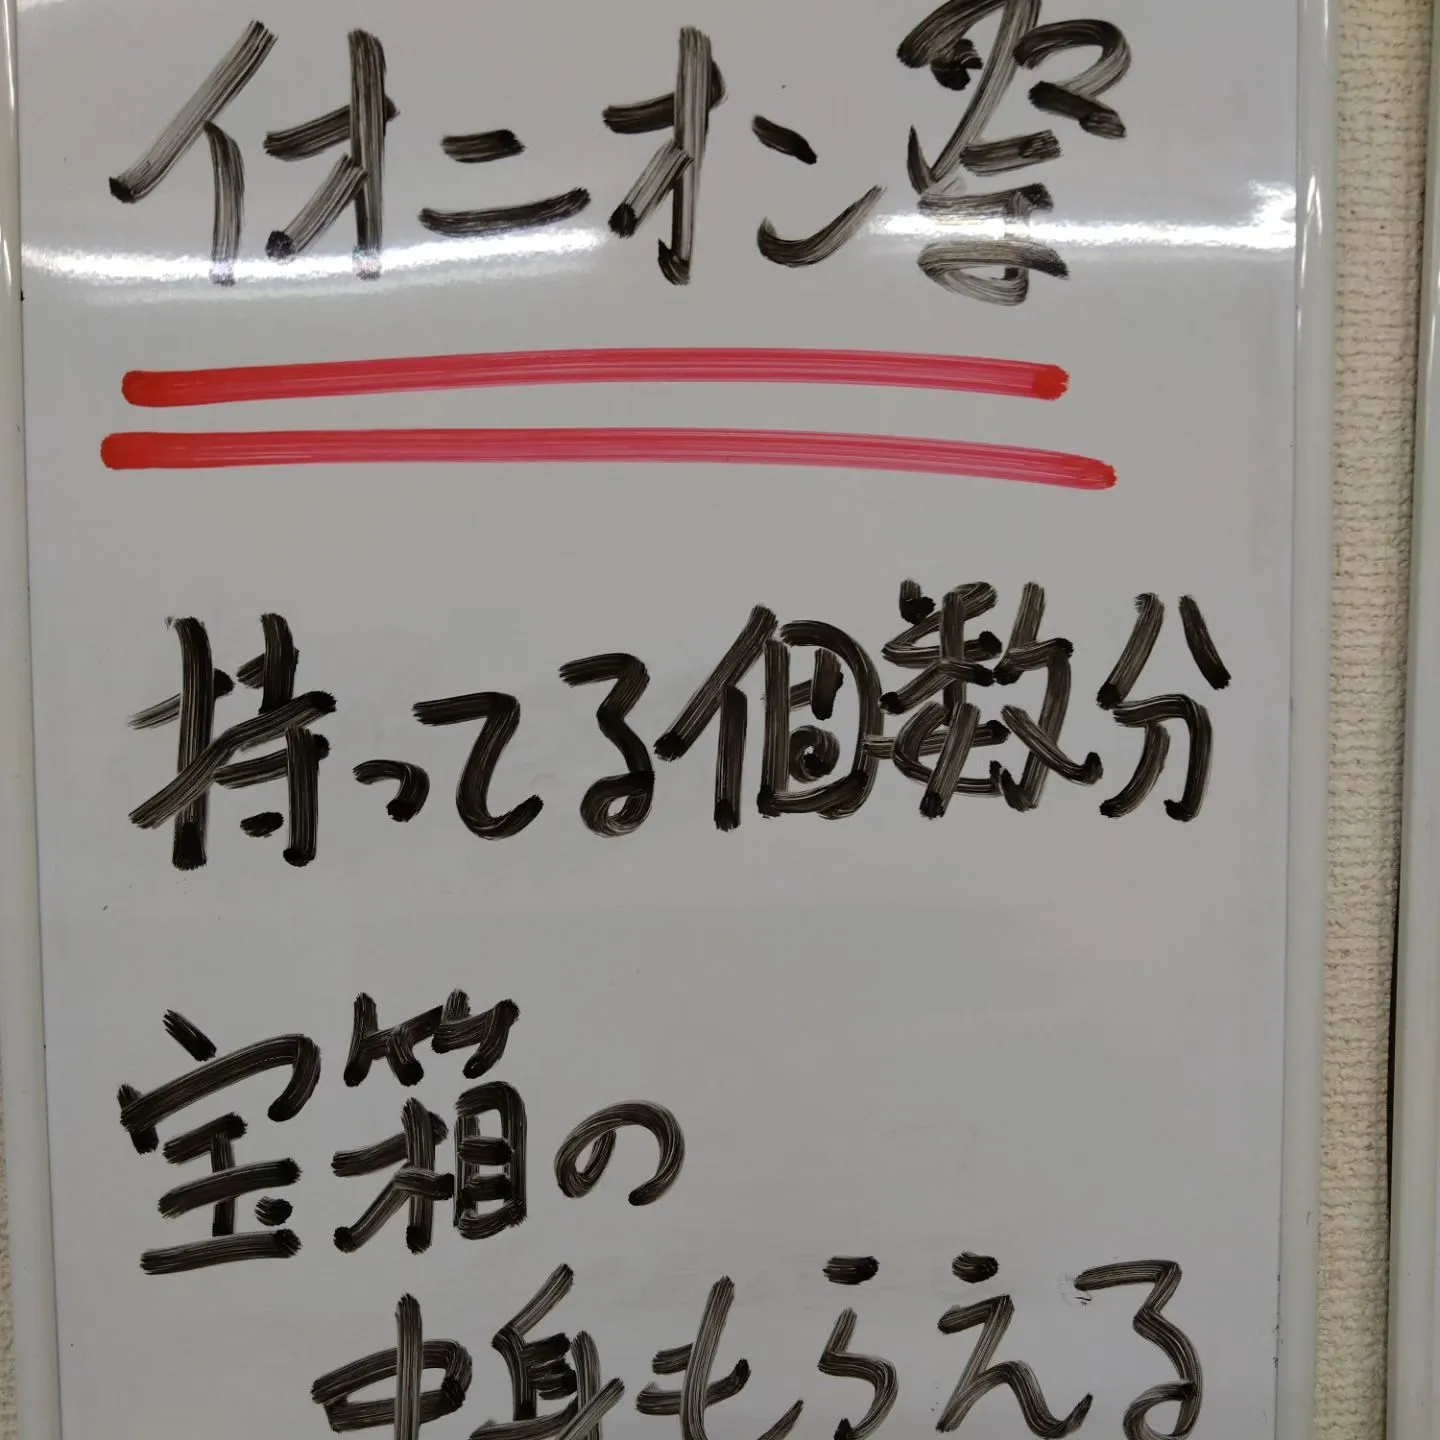 イオニオン響
持ってる個数分
宝箱の
中身もらえる